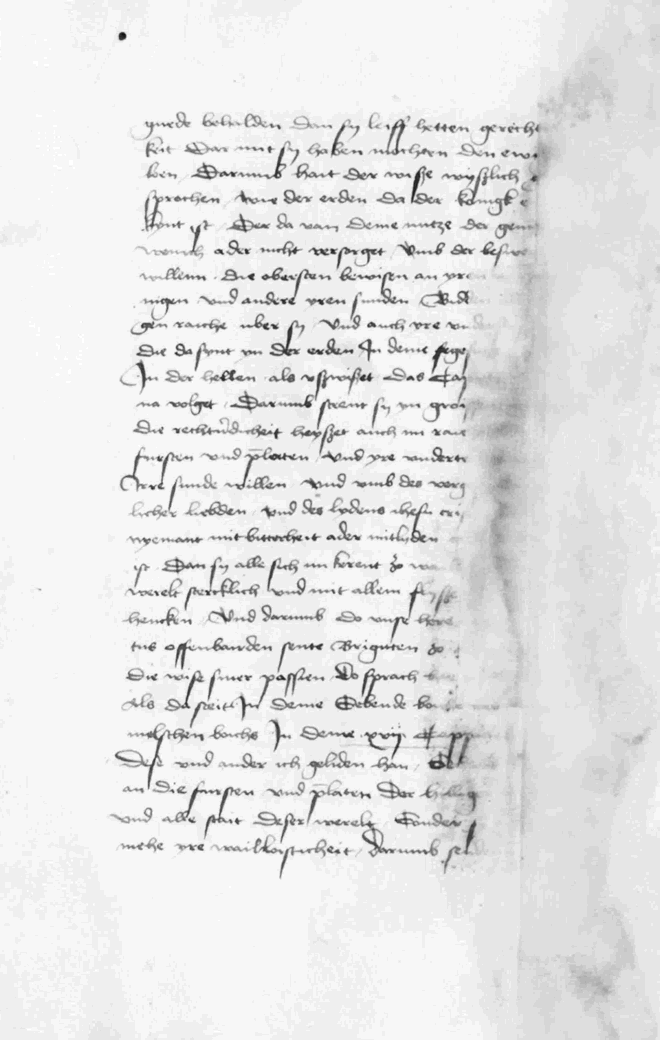 gnede behalden dan sy leiff hetten gerecht
keit Dar mit sy haben mochten den ewi
ben Darumb hait der wiße wyßlich
sprochen · we der erden da der konigk e
kynt ist · Der da van deme nutze der gem
wenich ader nicht versorget / Umb der besw
willenn · die obersten bewisen an yren
nigen und andere yren sunden
gen raiche uber sy / Und auch yre un
die da synt yn der erden In deme fege
In der hellen · als ußwißet das Ca
na volget · Darumb screut sy yn gro
die rechtverdicheit heyßet auch yn rai
fursten und platen / und yre underta
Irre sunde willen / und umb des verg
licher liebden / und des lydens ihesu cri
nyemant mit bitterheit ader mitlyden
ist · Dan sy alle sich nu kerent zo
werelt stercklich und mit allem flyße
hencken / Und darumb do unse here
tus offenbairden sente Brigiten zo
die wise siner passien Do sprach
Als da steit In deme Sebende bo
melschen boichs In deme xvij Capp
Dese und ander ich geliden han /
an die fursten und platen der hillig
und alle stait deser werelt / Sonder
mehe yre wailloisticheit / darumb se